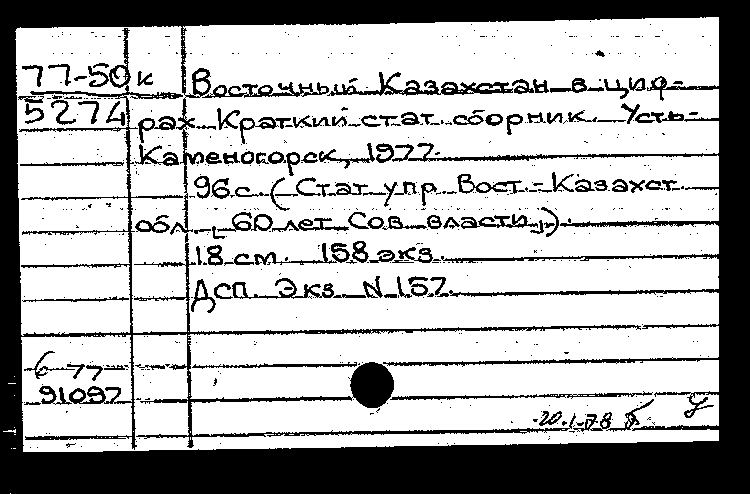 77-50к Восточный Казахстан в циф-
5274 рах. Краткий стат. сборник. Усть-
Каменогорск, 1977.
96с. (Стат. упр. Вост.-Казахст.
обл. „60 лет Сов. власти„).
18 см. 158 экз.
ДСП. Экз. N 157.
6 77
91097
20.1-78